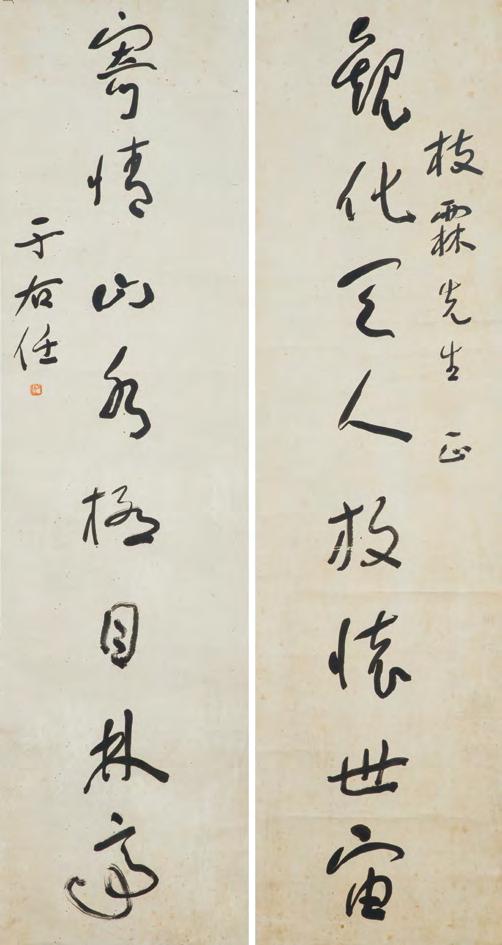 枝霖先生正
觀化天人放懷世宙
寄情山水極目林
于右任